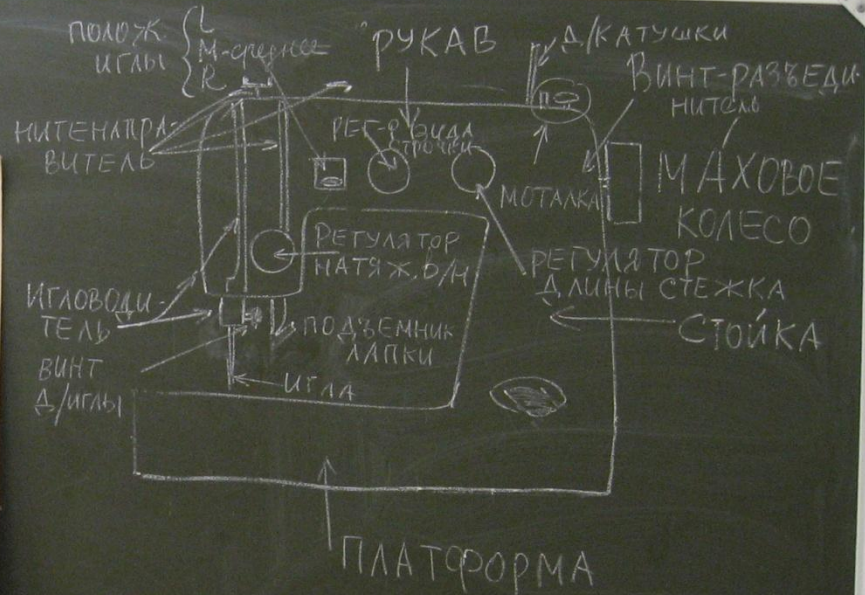 ПОЛОЖ.
ИГЛЫ
L
M-среднее
R
РУКАВ
Д/КАТУШКИ
ВИНТ-РАЗЪЕДИ-
НИТЕЛЬ
НИТЕНАПРА-
ВИТЕЛЬ
РЕГ-Р ВИДА
СТРОЧКИ
МОТАЛКА
МАХОВОЕ
КОЛЕСО
РЕГУЛЯТОР
НАТЯЖ. В/Н
РЕГУЛЯТОР
ДЛИНЫ СТЕЖКА
ИГЛОВОДИ-
ТЕЛЬ
ПОДЪЕМНИК
ЛАПКИ
СТОЙКА
ВИНТ
Д/ИГЛЫ
ИГЛА
ПЛАТФОРМА